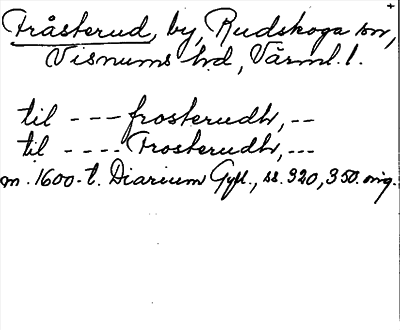 Fråsterud, by, Rudskoga sn,
Visnums hd, Värml. l.
til --- frosterudh, --
til ---- Frosterudh, ---
m. 1600-t. Diarium Gyll., ss. 320, 350. orig.